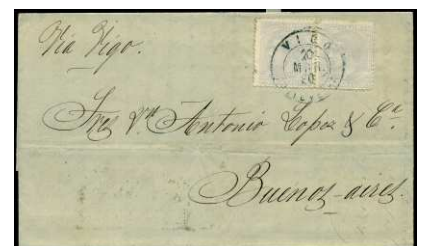 Via Vigo.
VIGO
Antonio Lopez & Cª.
Buenos-aires.